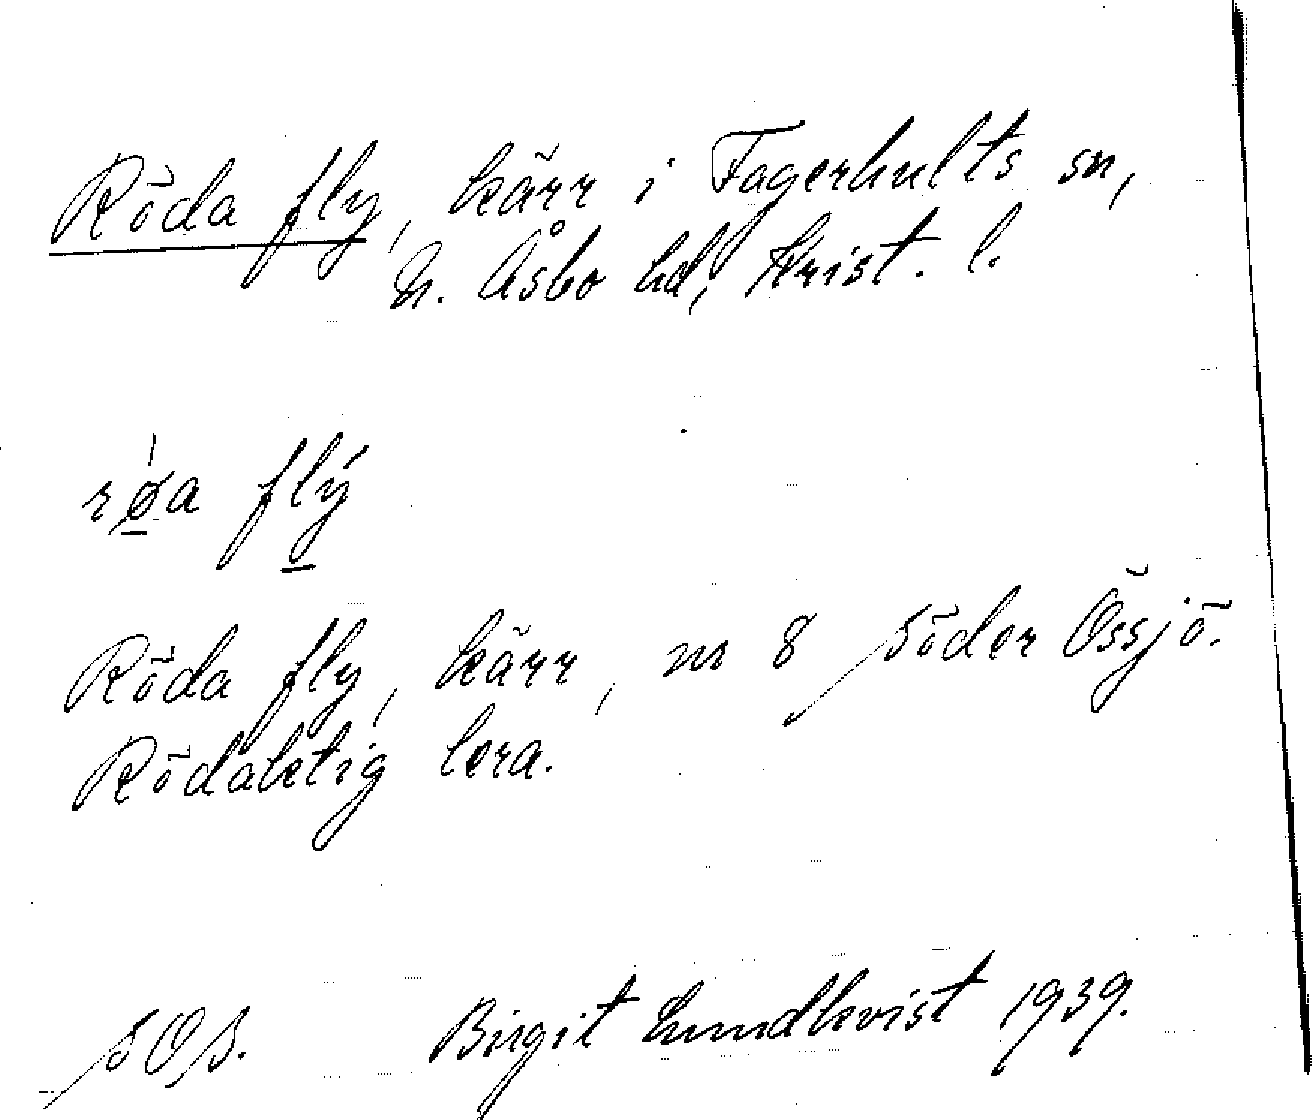 Röda fly, kärr i Fagerhults sn,
N. Åsbo hd, Krist. l.
røa flý
Röda fly, kärr, nr 8 söder Össjö.
Rödaktig lera.
SOS. Birgit Lundkvist 1939.